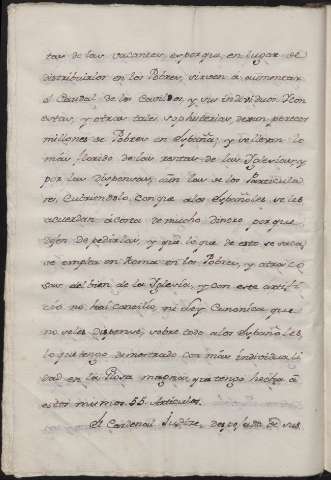 tas de las vacantes, es porque, en lugar de
distribuirlos en los Pobres, sirven á aumentar
el Caudal de los Cavildos, y sus individuos Con
estas, y otras tales sophisterias, dexan perecer
millones de Pobres en España; y se llevan lo
más florido de las rentas de las Iglesias, y
por las Dispensas, aún las de los Particula
res, Cubriendolo con que a los Españoles se les
acuerdan á costa de mucho dinero porque
dejen de pedirlas, y que lo que de esto se saca,
se emplea en Roma en los Pobres, y otras co
sas del bien de la Iglesia, y con este artifi
cio no hai Concilio, ni Ley Canonica que
no se les dispense, sobre todo a los Españoles,
lo que tengo demostrado con más individuali
dad en la Glosa magna, que tengo hecha á
estos mismos 55. Articulos.
El Cardenal Judice, despojado de sus